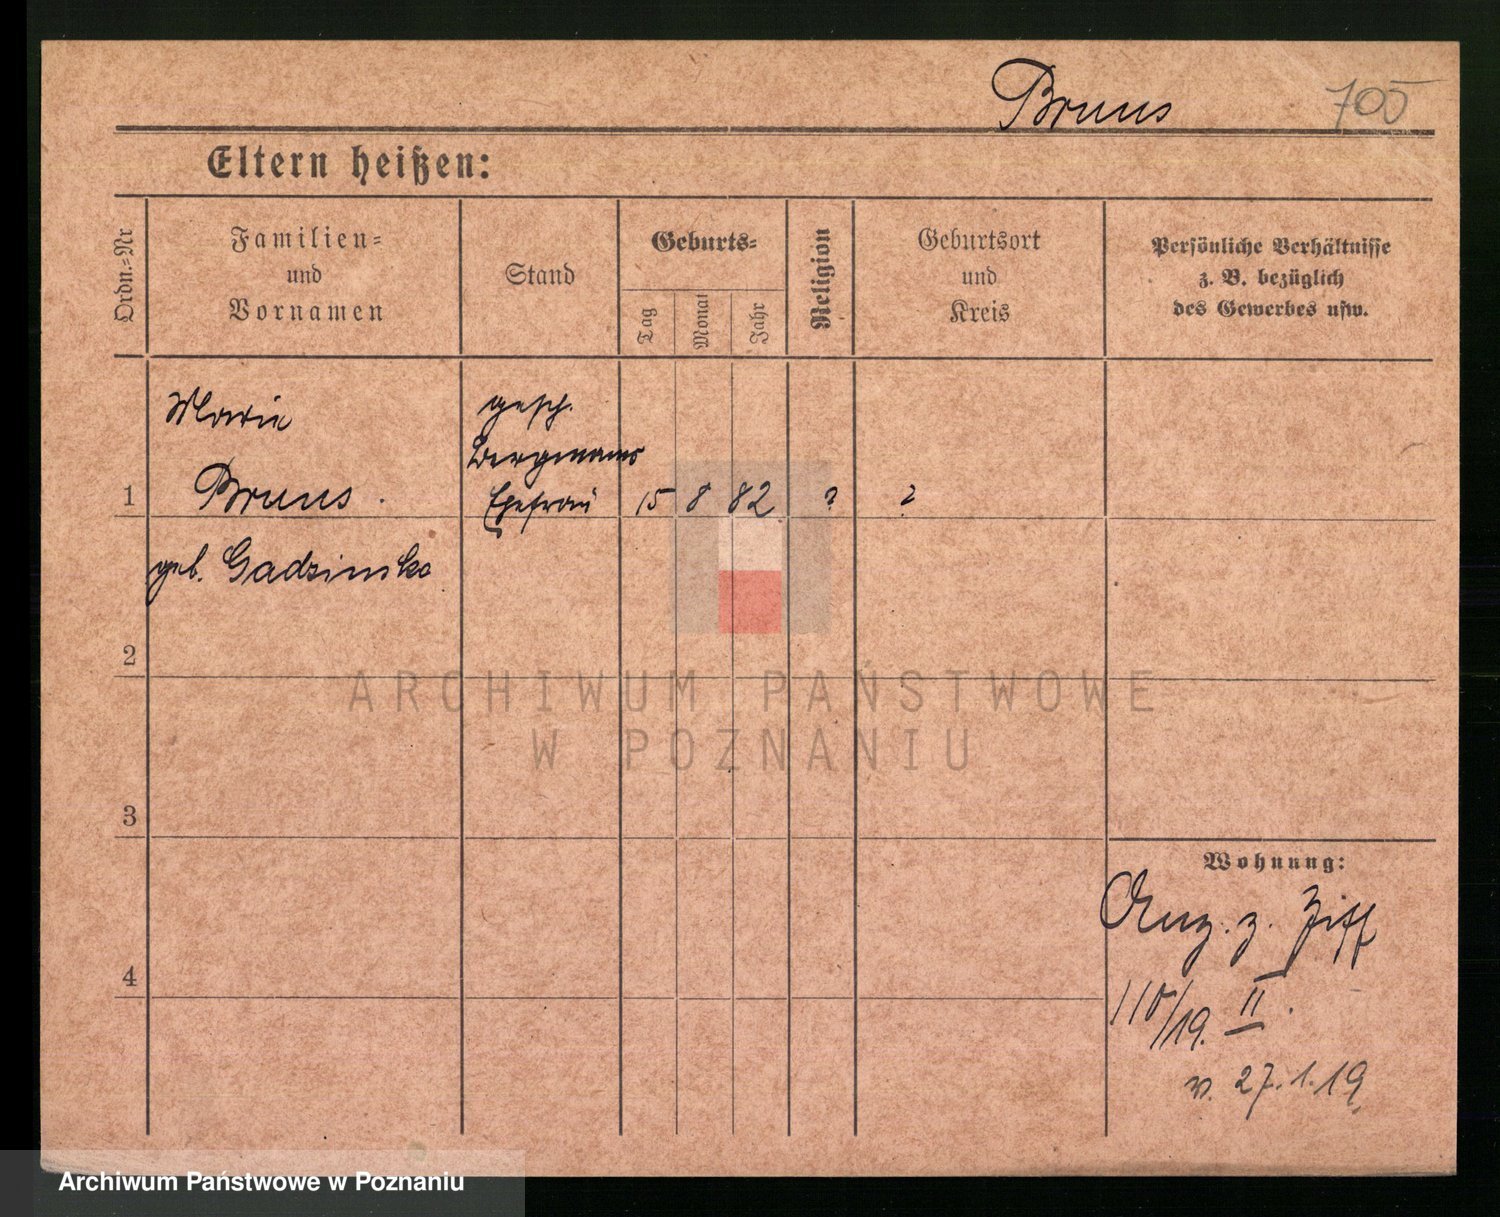 Bruns 705
Eltern heißen:
Ordn.=Nr
Familien=
und
Vornamen
Stand
Geburts=
Tag
Monat
Jahr
Religion
Geburtsort
und
Kreis
Persönliche Verhältnisse
z. B. bezüglich
des Gewerbes usw.
Marie gesch.
Bergmanns
1 Bruns. Ehefrau 15 8 82 ? ?
geb. Gadzinska
2
ARCHIWUM PAŃSTWOWE
W POZNANIU
3
Wohnung:
Anz. z. Ziff
4
110/19. II.
v. 27.1.19.
Archiwum Państwowe w Poznaniu